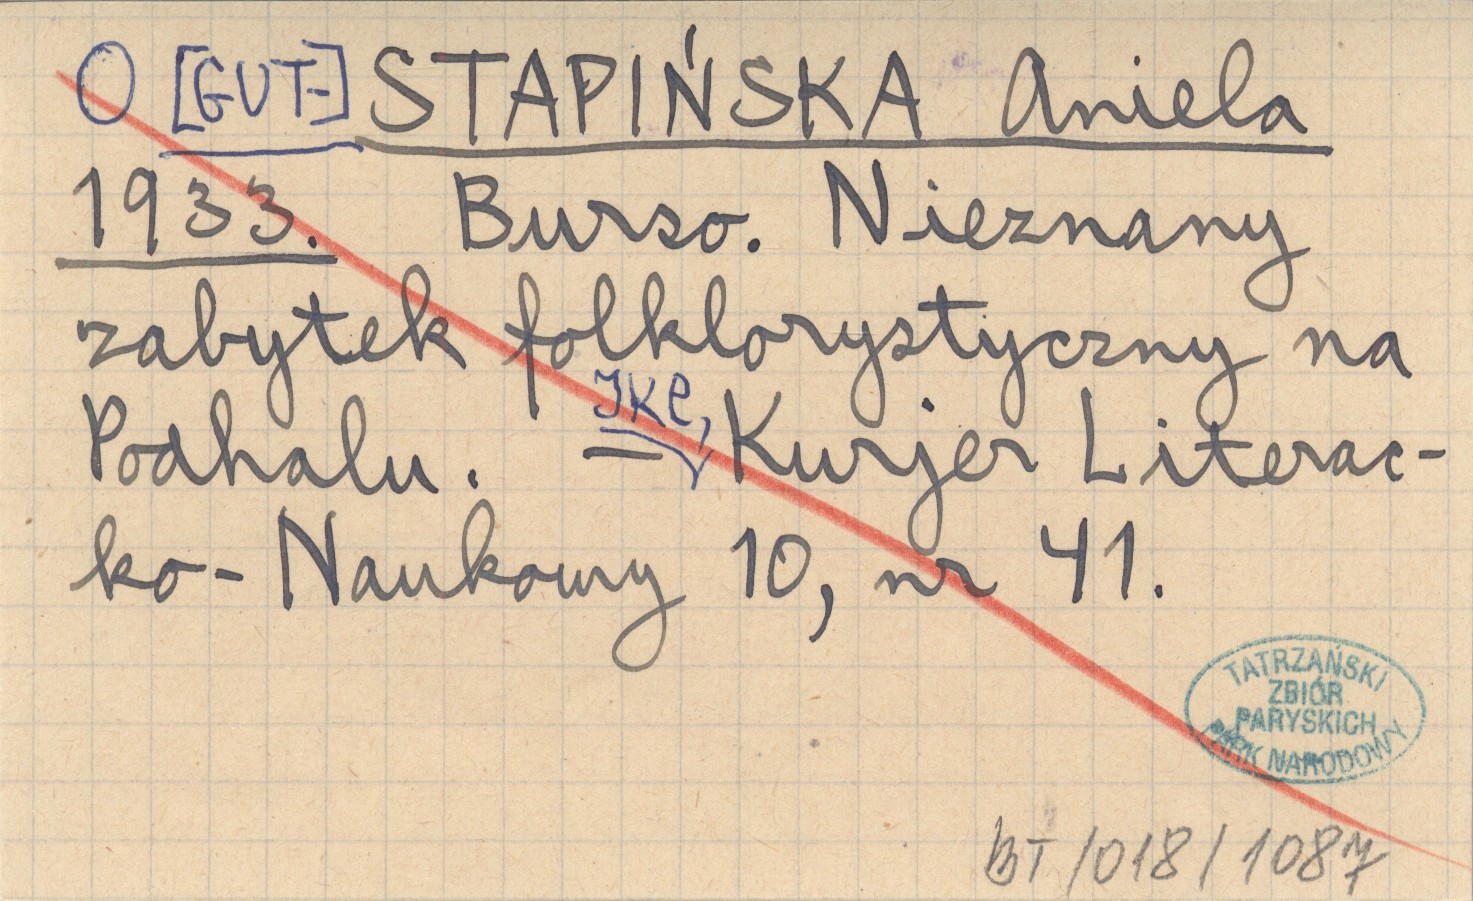 O [GUT-] STAPIŃSKA Aniela
1933. Burso. Nieznany
zabytek folklorystyczny na
IKC,
Podhalu. — Kurjer Literac-
ko-Naukowy 10, nr 41.
TATRZAŃSKI
ZBIÓR
PARYSKICH
PARK NARODOWY
BT/018/1087